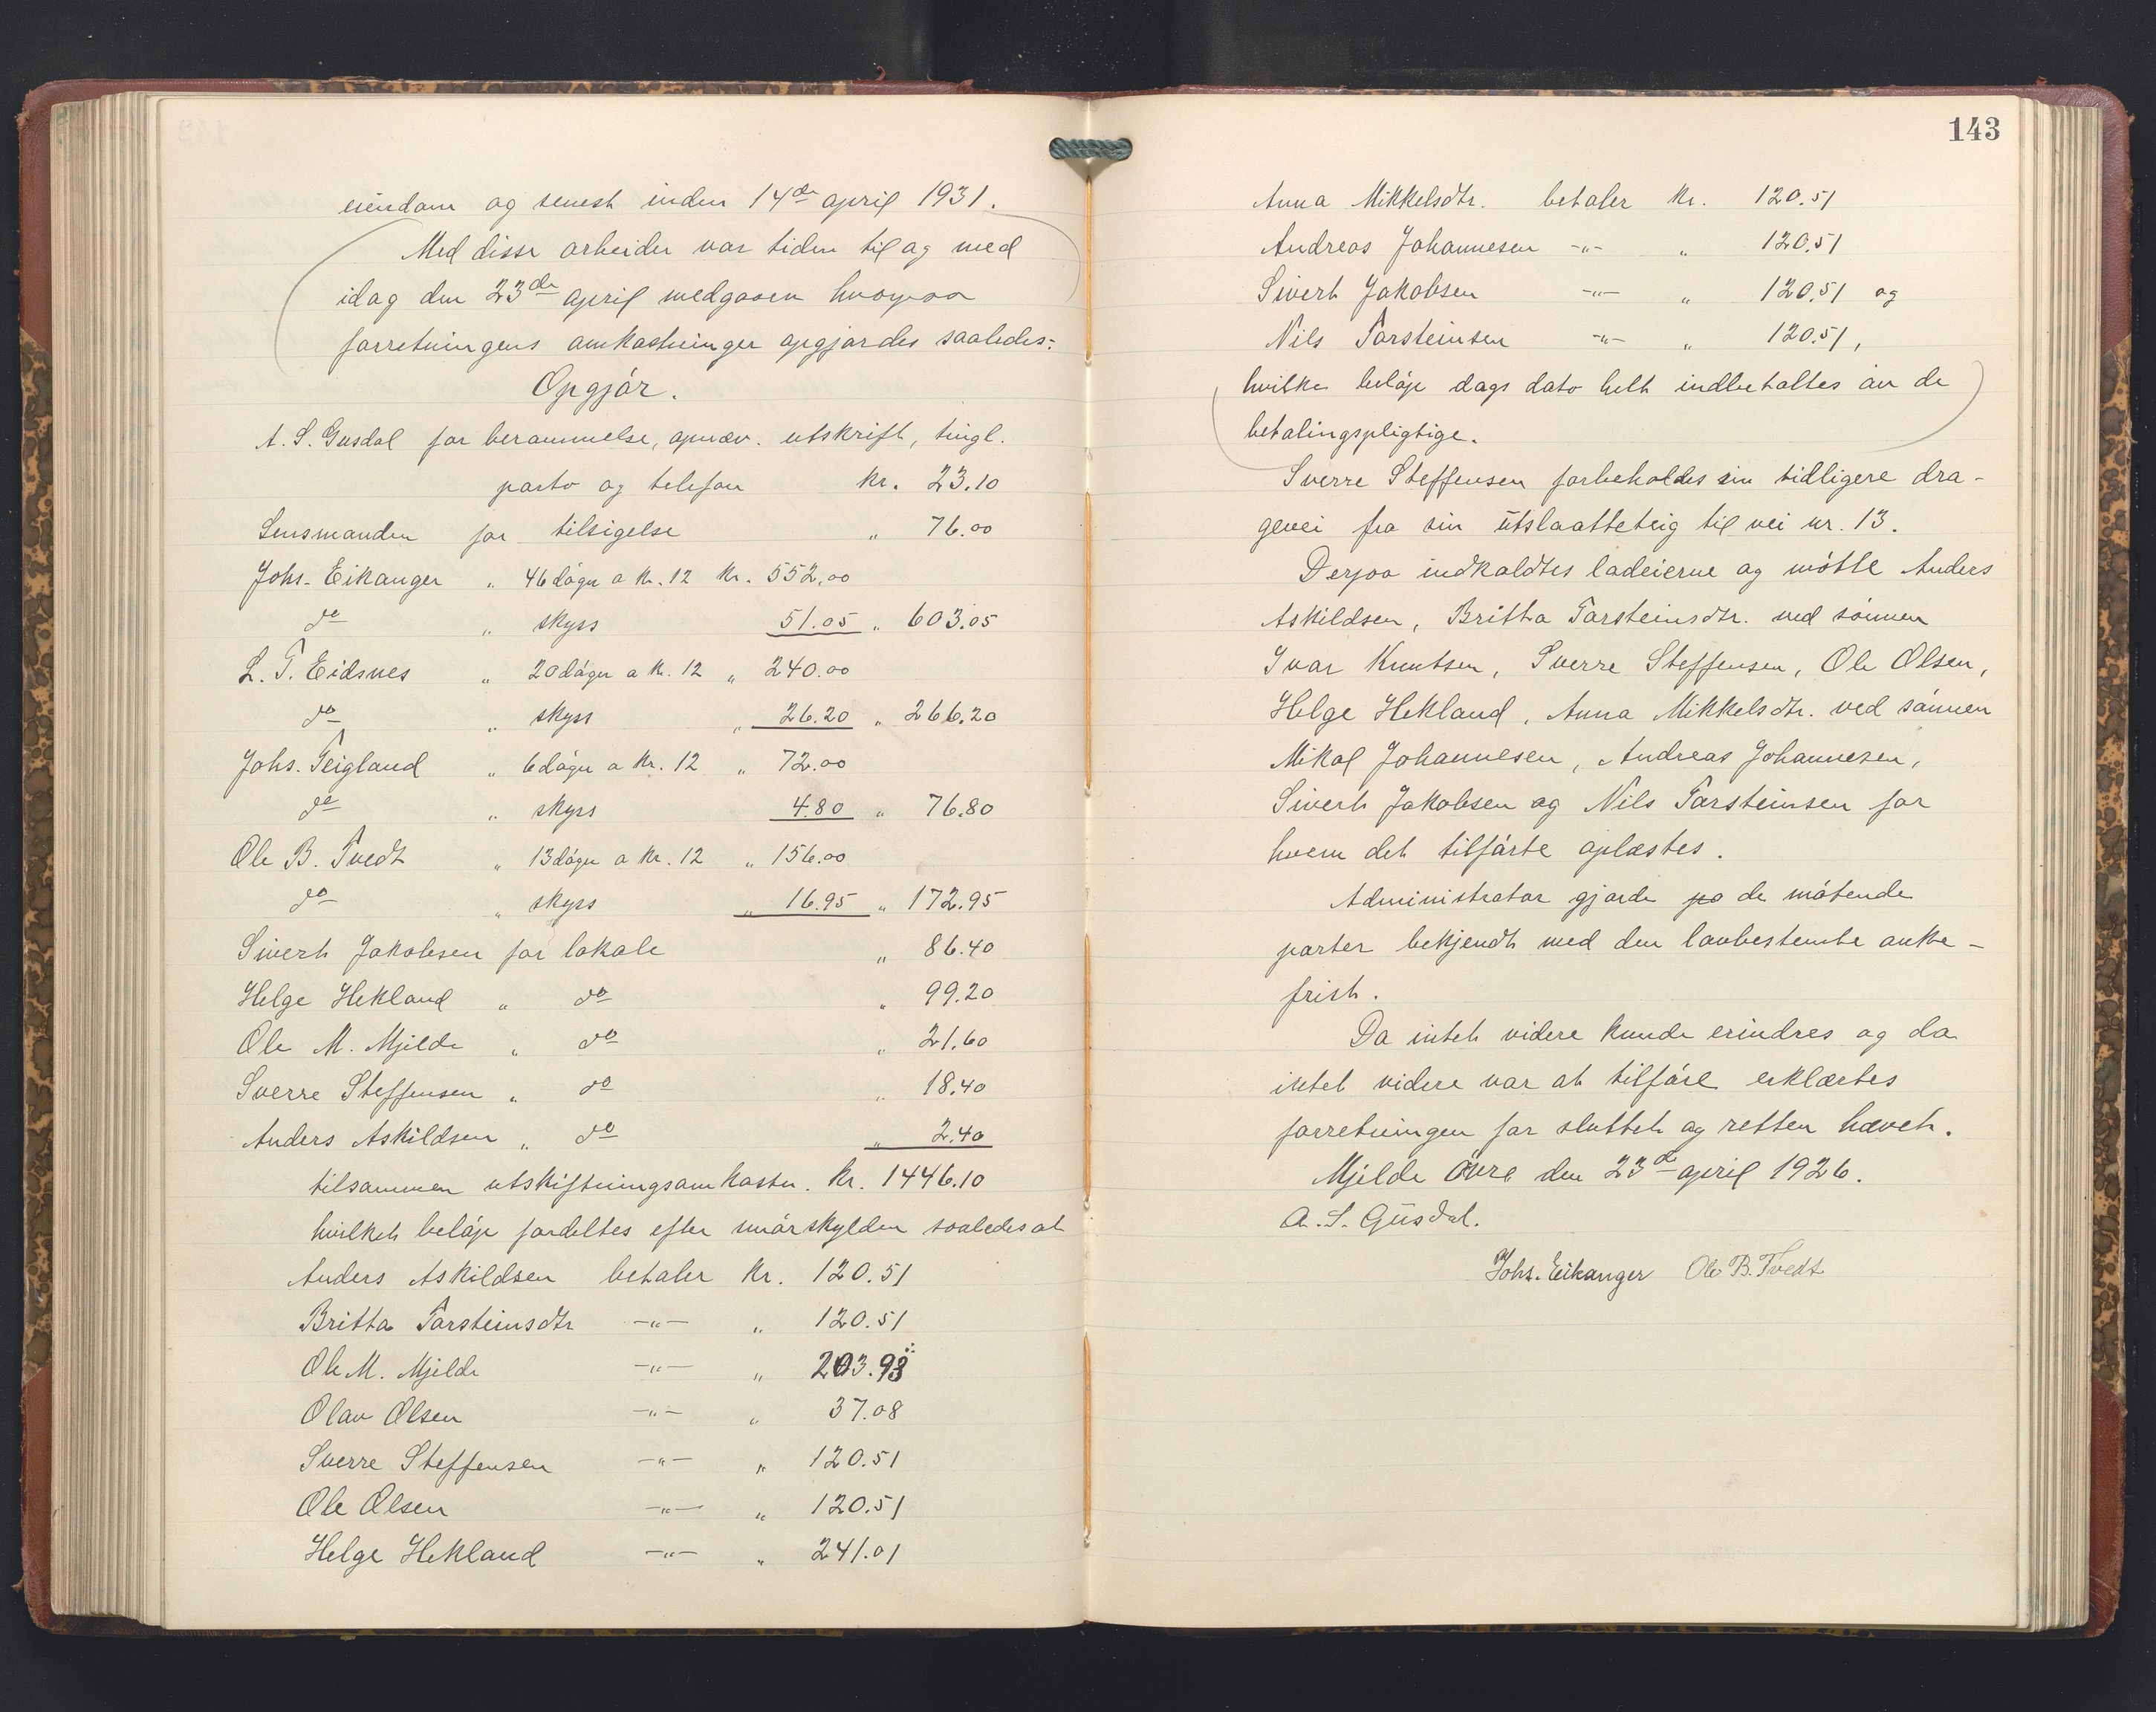 eiendom og senest inden 14de april 1931.
Med disse arbeider var tiden til og med
idag den 23de april medgaaen hvorpaa
forretningens omkostninger opgjordes saaledes:
Opgjór.
A. S. Gusdal for berammelse, opnæv. utskrift, tingl.
porto og telefon kr. 23.10
Lensmanden for tilsigelse " 76.00
Johs. Eikanger " 46 dágn a kr. 12 kr. 552.00
do " skyss 51.05 " 603.05
L. T. Eidsnes " 20 dágn a kr. 12 " 240.00
do " skyss " 26.20 " 266.20
Johs. Teigland " 6 dágn a kr. 12 " 72.00
do " skyss 4.80 " 76.80
Ole B. Tvedt " 13 dágn a kr. 12 " 156.00
do " skyss " 16.95 " 172.95
Sivert Jakobsen for lokale " 86.40
Helge Hekland " do " 99.20
Ole M. Mjelde " do " 21.60
Sverre Steffensen " do " 18.40
Anders Askildsen " do " 2.40
tilsammen utskiftningsomkostn. kr. 1446.10
hvilket beláp fordeltes efter urárskylden saaledes at
Anders Askildsen betaler kr. 120.51
Britta Torsteinsdtr -"- " 120.51
Ole M. Mjelde -"- " 203.93
Olav Olsen -"- " 37.08
Sverre Steffensen -"- " 120.51
Ole Olsen -"- " 120.51
Helge Hekland -"- " 241.01
143
Anna Mikkelsdtr. betaler kr. 120.51
Andreas Johannesen -"- " 120.51
Sivert Jakobsen -"- " 120.51 og
Nils Torsteinsen -"- " 120.51,
hvilke beláp dags dato helt indbetaltes av de
betalingspligtige.
Sverre Steffensen forbeholdes sin tidligere dra-
gevei fra sin utslaatteteig til vei nr. 13.
Derpaa indkaldtes lodeierne og mótte Anders
Askildsen, Britta Torsteinsdtr. ved sónnen
Ivar Knutsen, Sverre Steffensen, Ole Olsen,
Helge Hekland, Anna Mikkelsdtr. ved sónnen
Mikal Johannesen, Andreas Johannesen,
Sivert Jakobsen og Nils Torsteinsen for
hvem det tilfórte oplæstes.
Administrator gjorde de mótende
parter bekjendt med den lovbestemte anke-
frist.
Da intet videre kunde erindres og da
intet videre var at tilfóre erklærtes
forretningen for sluttet og retten hævet.
Mjelde Óvre den 23de april 1926.
A. S. Gusdal.
Johs. Eikanger Ole B. Tvedt